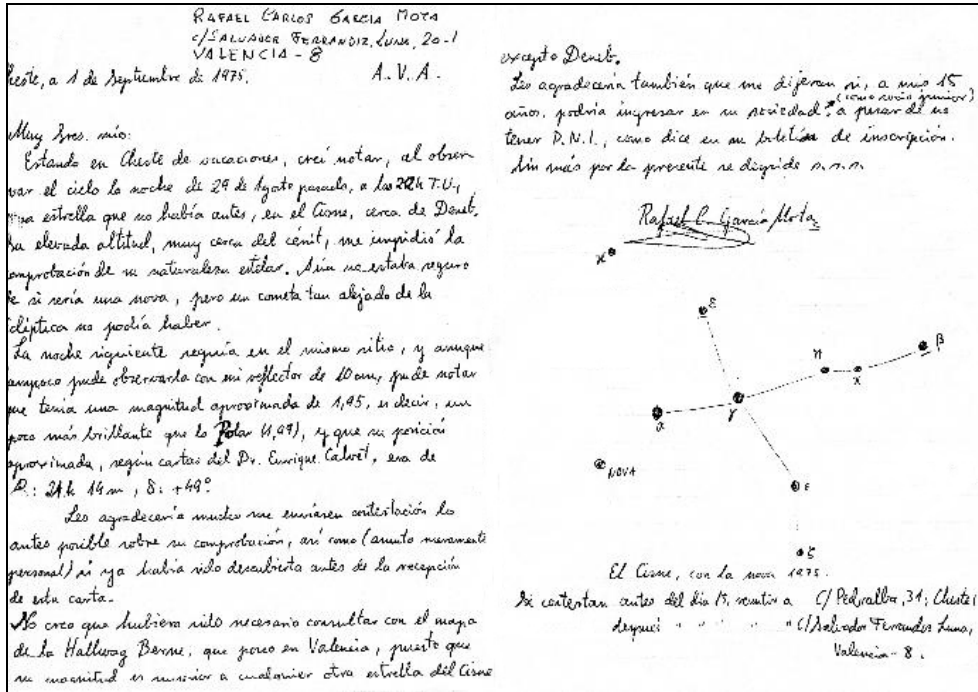 RAFAEL CARLOS GARCIA MOTA
C/SALVADOR FERRANDIZ LUNA, 20-1
VALENCIA - 8
A.V.A.
heste, a 1 de Septiembre de 1975.
Muy Sres. mio:
Estando en Cheste de vacaciones, creí notar, al obser-
var el cielo la noche de 29 de Agosto pasado, a las 22h T.U.,
una estrella que no había antes, en el Cisne, cerca de Deneb.
Su elevada altitud, muy cerca del cénit, me impidió la
omprobación de su naturaleza estelar. Aún no estaba seguro
de si sería una nova, pero un cometa tan alejado de la
clíptica no podía haber.
La noche siguiente seguía en el mismo sitio, y aunque
ampoco pude observarla con mi reflector de 10 cm, pude notar
que tenía una magnitud aproximada de 1,95, es decir, un
poco más brillante que la Polar (1,99), y que su posición
aproximada, según cartas del Dr. Enrique Calvet, era de
21h 14m, δ: +49º
Les agradecería mucho me enviasen contestación lo
antes posible sobre su comprobación, así como (asunto meramente
personal) si ya había sido descubierta antes de la recepción
de esta carta.
No creo que hubiera sido necesario consultar con el mapa
de la Hallwag Berne, que poseo en Valencia, puesto que
su magnitud es superior a cualquier otra estrella del Cisne
excepto Deneb.
Les agradecería también que me dijeran si, a mis 15
años, podría ingresar en su sociedad (como socio junior) a pesar de no
tener D.N.I., como dice en su boletín de inscripción.
Sin más por la presente se despide s.s.s.
Rafael C. García Mota
κ
δ
η
χ
β
α
γ
NOVA
ε
ζ
El Cisne, con la nova 1975.
Si contestan antes del día 15, remitir a C/ Pedralba, 31; Cheste;
después " " " " " C/ Salvador Ferrandis Luna,
Valencia - 8.